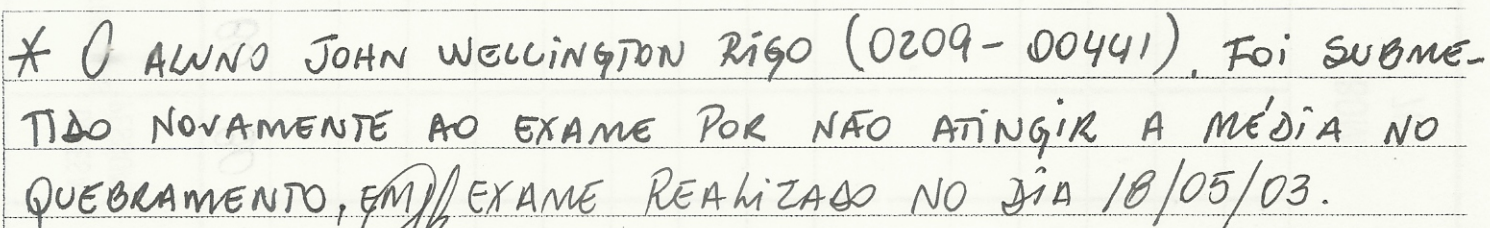 * O ALUNO JOHN WELLINGTON RIGO (0209-00441), FOI SUBME-
TIDO NOVAMENTE AO EXAME POR NÃO ATINGIR A MÉDIA NO
QUEBRAMENTO, EM EXAME REALIZADO NO DIA 18/05/03.